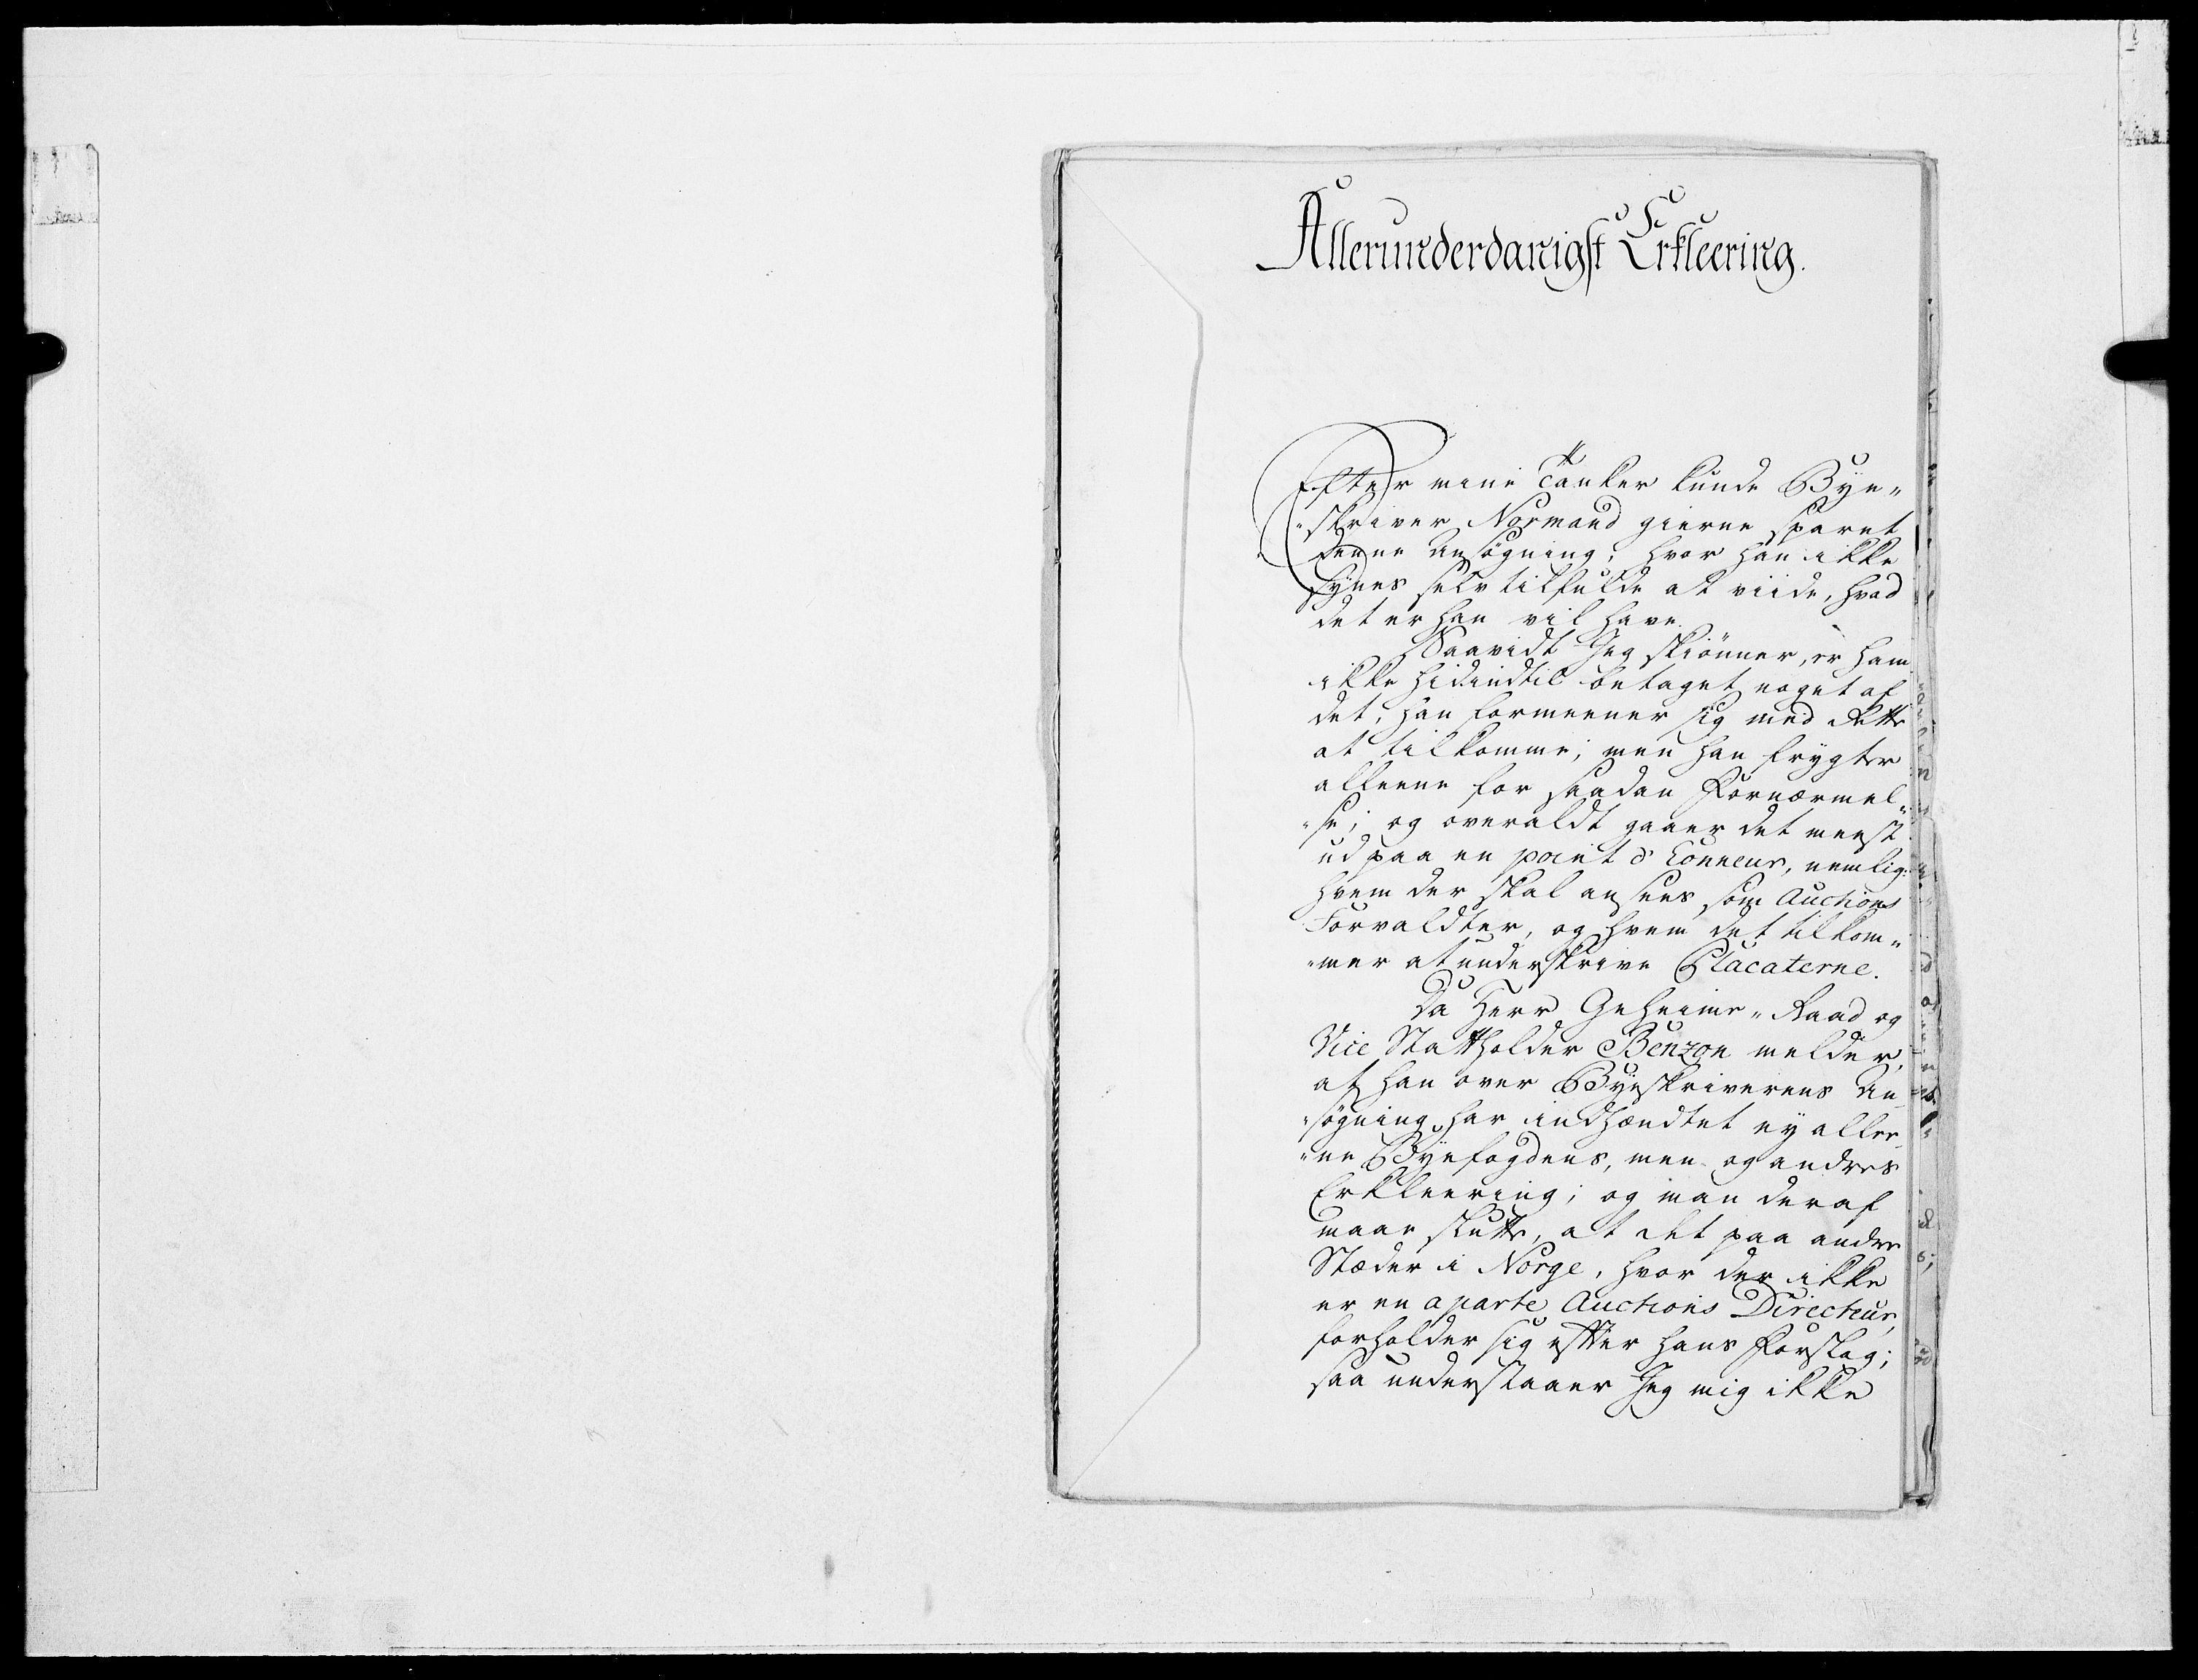 Allerunderdanigst Erkleering.
Efter mine Tanker kunde Bye„
„skriver Normand gierne sparet
denne Ansögning; hvor han ikke
synes selv tilfulde at viide, hvad
det er han vil have.
Saavidt Jeg skiönner, er ham
ikke hidindtil betaget noget af
det, han formeener sig med Rette
at tilkomme; men han frygter
alleene for saadan Fornærmel„
„se; og overaldt gaaer det meest
ud paa en point d'honneur, nemlig:
hvem der skal ansees som Auctions
Forvaldter, og hvem det tilkom„
„mer at underskrive Placaterne.
Da Herr Geheime„Raad og
Vice Statholder Benzon melder,
at han over Byeskriverens An„
„sögning har indhændtet ey allee„
„ne Byefogdens, men og andres
Erkleering; og man deraf
maae slutte, at det paa andre
Stæder i Norge, hvor der ikke
er en aparte Auctions Directeur,
forholder sig efter hans Forslag;
saa understaaer Jeg mig ikke